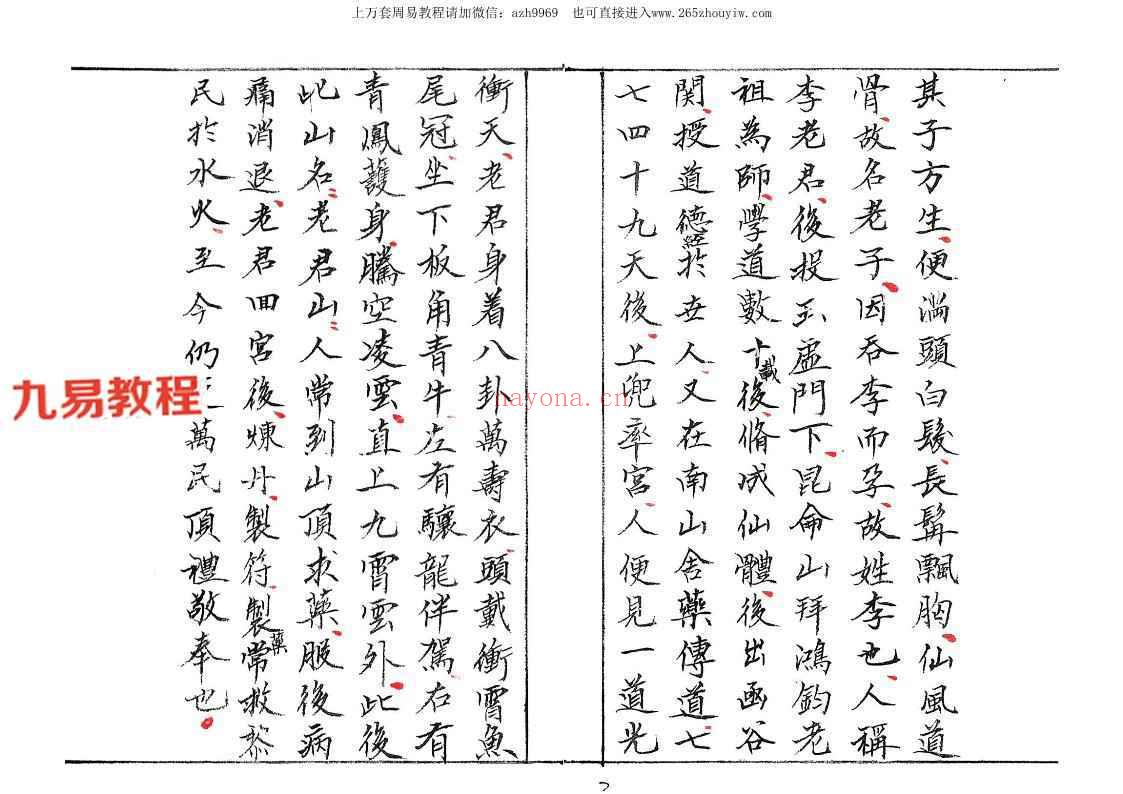 上万套周易教程请加微信：azh9969 也可直接进入www.265zhouyiw.com
其子方生、便满頭白髮、長髯飄胸、仙風道
骨、故名老子、因吞李而孕、故姓李也、人稱
李老君、後投玉虛門下、昆侖山拜鴻鈞老
祖為師、學道數十載後、脩成仙體、後出函谷
関、授道德經於世人、又在南山舍藥傳道、七
七四十九天後、上兜率宮、人便見一道光
衝天、老君身着八卦萬壽衣、頭戴衝霄魚
尾冠、坐下板角青牛、左有驤龍伴駕、右有
青鳳護身、騰空凌雲、直上九霄雲外、此後
此山名〻老君山〻人常到山頂求藥、服後病
痛消退、老君回宮後、煉丹、製符、製藥常救黎
民於水火、至今仍 萬民頂禮敬奉也、
九易教程
nayona.cn
2